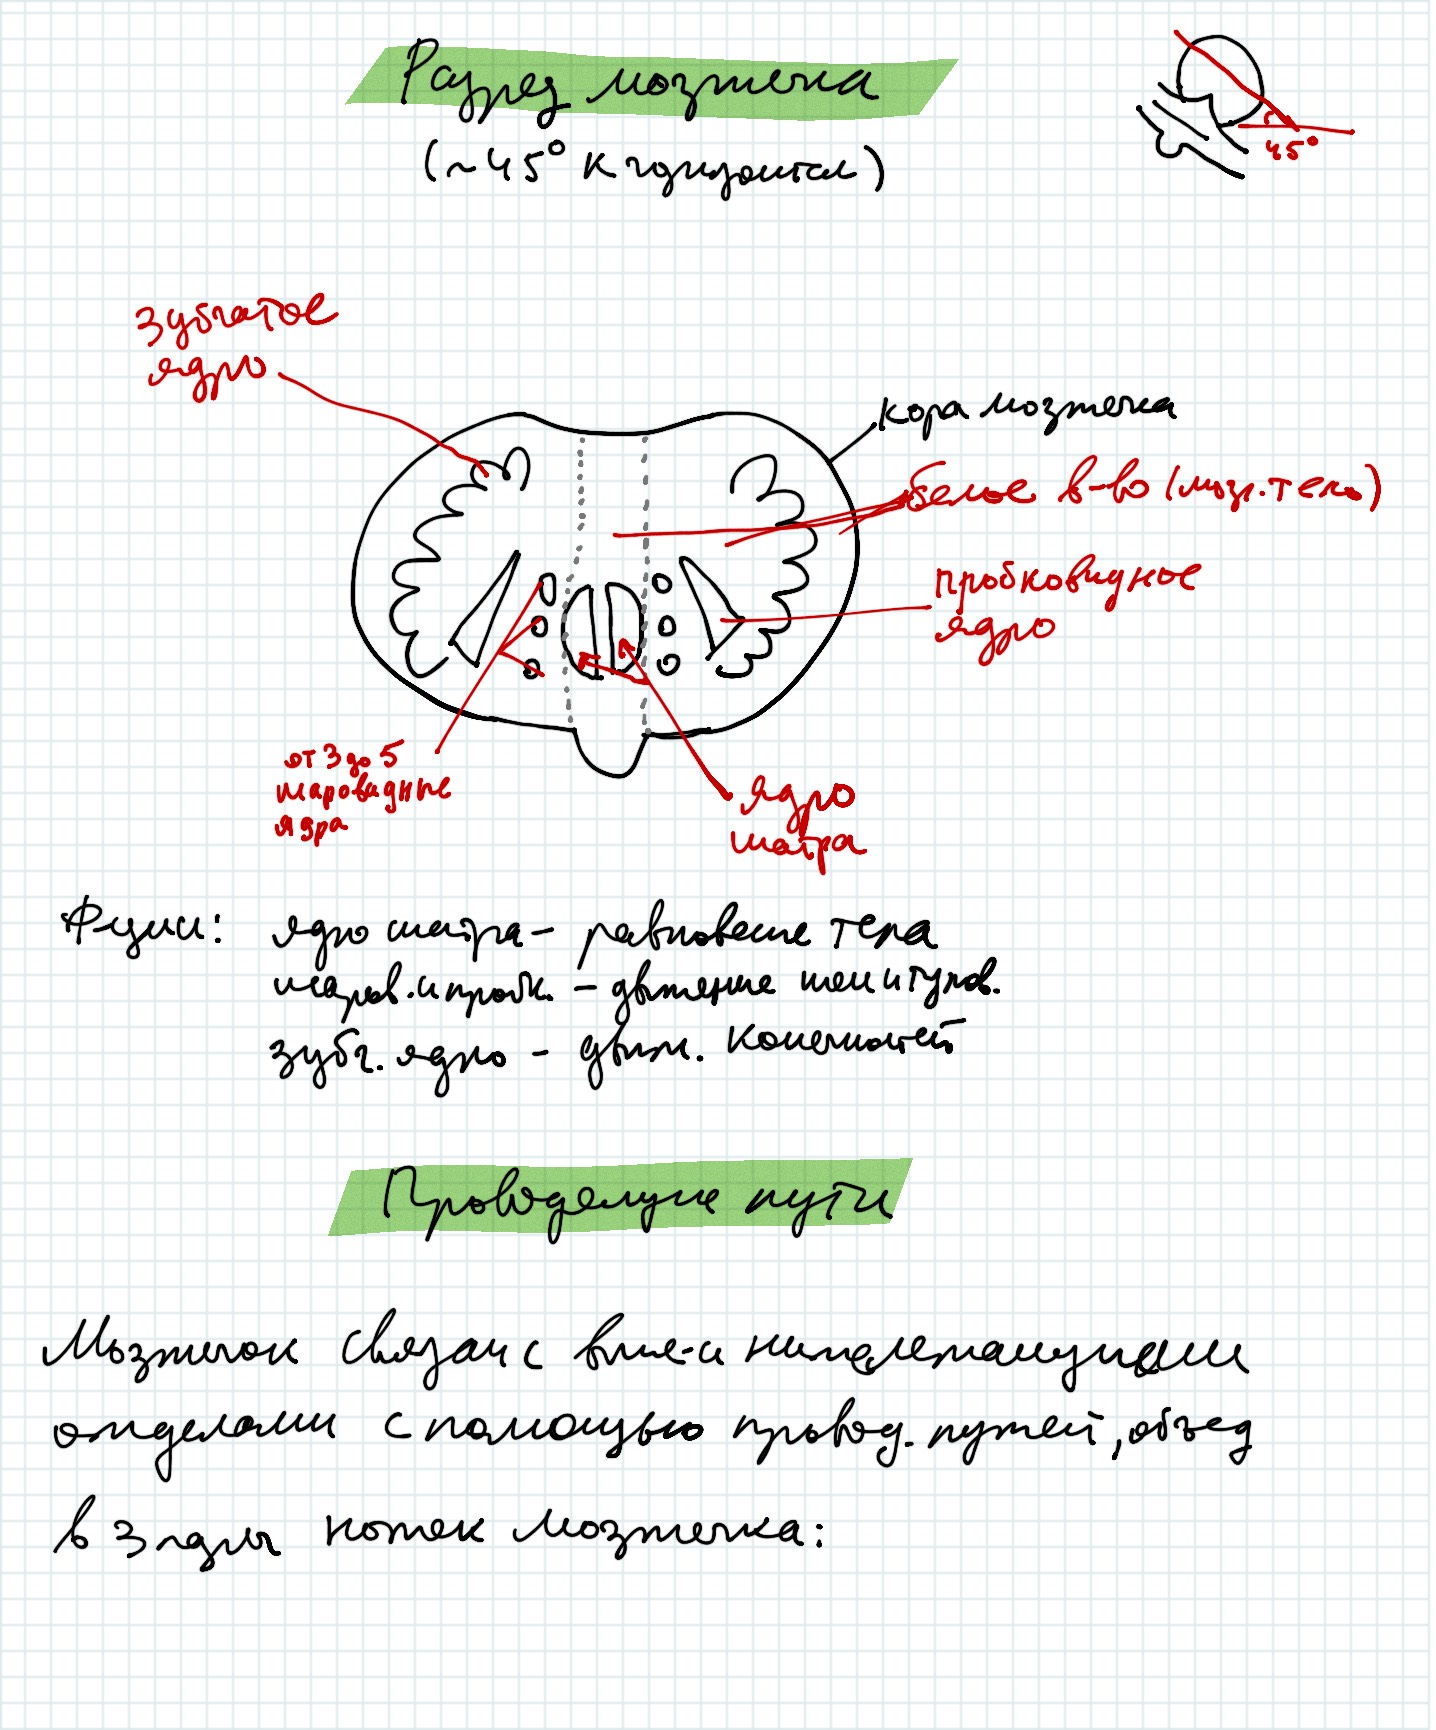 Разрез мозжечка
(~45° к горизонтали)
45°
зубчатое
ядро
кора мозжечка
белое в-во (мозг. тело)
пробковидное
ядро
от 3 до 5
шаровидные
ядра
ядро
шатра
Фции: ядро шатра – равновесие тела
шаров. и пробк. – движение шеи и тулов.
зубч. ядро – движ. конечностей
Проводящие пути
Мозжечок связан с выше- и нижележащими
отделами с помощью провод. путей, объед
в 3 пары ножек мозжечка: